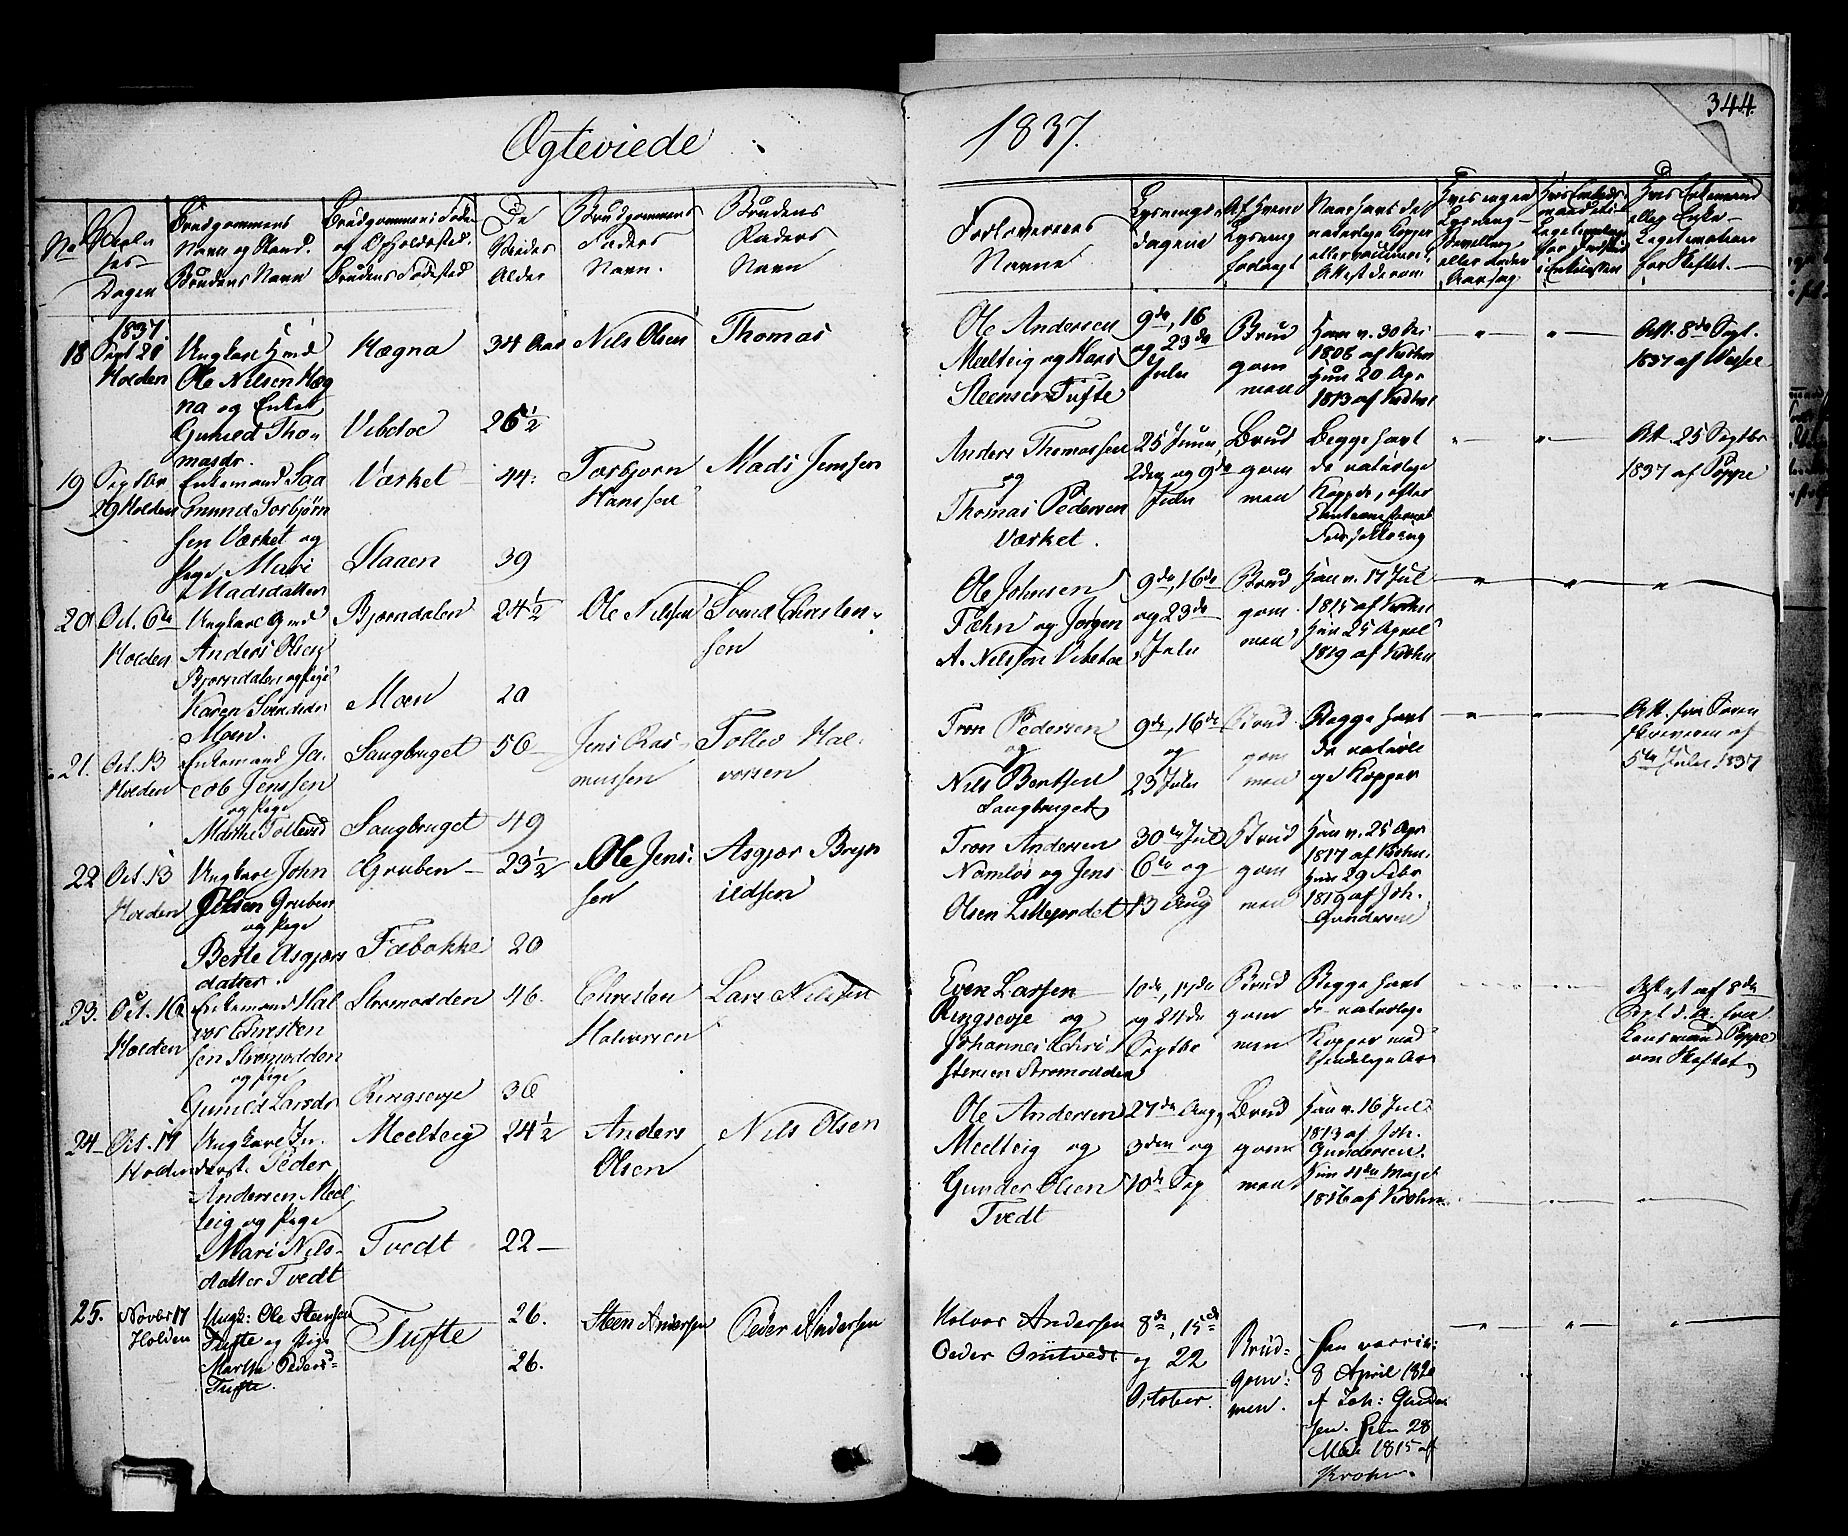 Ogteviede
1837.
344.
No
Vielses-
Dagen
Brudgommens
Navn og Stand.
Brudens Navn
Brudgommens Føde
og Opholdssted.
Brudens Fødested
De
Viedes
Alder
Brudgommens
Faders
Navn.
Brudens
Faders
Navn
Forlovernes
Navne
Lysnings
dagene
Af hvem
Lysning
forlangt
Naar havt de
naturlige Kopper
eller vaccineret
Attest derom
Hvis ingen
Lysning
Bevilling
eller anden
Aarsag
Hvis Enkemand
eller Enke
Legitimation
for Skiftet.
1837
18 Sept 21
Holden
Ungkarl
Ole Nilsen Hæg
na og Enke
Gunild Tho-
masdr.
Hægna
Vibetoe
34 Aar
26 1/2
Nils Olsen
Thomas
Ole Andersen
Meelteig og Hans
Steensen Tufte
9de, 16
og 23de
Julii
Brud
gom
men
Ham v. 30
1806 af Krohn
Hun 20 Apr
1813 af Krohn
Att. 8de Sept.
1837 af
19 Septbr
29 Holden
Enkemand Saa
mund Torbjørn
sen Værket og
Pige Mari
Madsdatter
Værket
Staaen
44.
39
Torbjørn
Hanssen
Mads Jenssen
Anders Thomassen
og
Thomas Pedersen
Værket.
25 Juni,
2den og 9de
Julii
Brud
gom
men
Begge havt
de naturlige
Kopper, efter
Att. 25 Septbr
1837 af Poppe
20 Oct. 6te
Holden
Ungkarl
Anders Olsen
Bjørndalen og Pige
Karen Svendsdr
Moen.
Bjørndalen
Moen
24 1/2
20
Ole Nilssen
Svend Christen-
sen
Ole Johnsen
Fæhn og Jørgen
A. Nilsson Vibetoe
9de, 16de
og 23de
Julii
Brud
gom
men
Ham v. 17 Jul
1815 af Krohn
Hun 25 April
1819 af Krohn
21. Oct. 13
Holden
Enkemand Ja-
cob Jenssen
og Pige
Marthe Tollevsd
Saugbruget
Saugbruget
56
49
Jens Ras-
mussen
Tollev Hal-
vorsen
Tron Pedersen
og
Nils Bentsen
Saugbruget
9de, 16de
og
23 Julii
Brud
gom
men
Begge havt
de naturli
ge Kopper
Att. fra Soren
skriveren af
5te Julii 1837
22 Oct. 13
Holden
Ungkarl John
Olsen Gruben
og Pige
Berte Asgjærs
datter.
Gruben
Fæbakke
23 1/2
20
Ole Jens-
sen
Asgjær Bryn
ildsen
Tron Andersen
Namløs og Jens
Olsen Lillejordet
30te Jul
6te og
13 Aug
Brud
gom
men
Ham v. 25 Apr
1817 af Krohn.
Hun 29 Febr
1819 af Joh.
Gundersen
23. Oct. 16
Holden
Enkemand Hal
vor Christen
sen Strømodden
og Pige
Gunild Larsdr
Strømodden
Ringsevje
46.
36
Christen
Halvorsen
Lars Nilssen
Even Larsen
Ringsevje og
Johannes Chri
stensen Strømodden
10de, 17de
og 24de
Septbr
Brud
gom
men
Begge havt
de naturlige
Kopper med
synlige Ar
Attest af 8de
Sept. d. A. fra
Lensmand Poppe
om Skiftet
24 Oct. 19
Holden
Ungkarl In-
derst Peder
Andersen Meel
teig og Pige
Mari Nils-
datter Tvedt
Meelteig
Tvedt
24 1/2
22
Anders
Olsen
Nils Olsen
Ole Andersen
Meelteig og
Gunder Olsen
Tvedt
27de Aug,
3den og
10de Sep
Brud
gom
men
Ham v. 16 Jul
1813 af Joh.
Gundersen.
Hun 4de Maji
1816 af Krohn
25. Novbr 17
Holden
Ungk: Ole Steensen
Tufte og Pige
Marthe Pedersd
Tufte.
Tufte
26.
26.
Steen Andersen
Peder Andersen
Halvor Andersen
Peder Omtvedt
8de, 15de
og 22
October.
Brud-
gom-
men.
Han vaccin:
8 April 1820
af Joh: Gunder
sen. Hun 28
Mai 1815 af
Krohn.